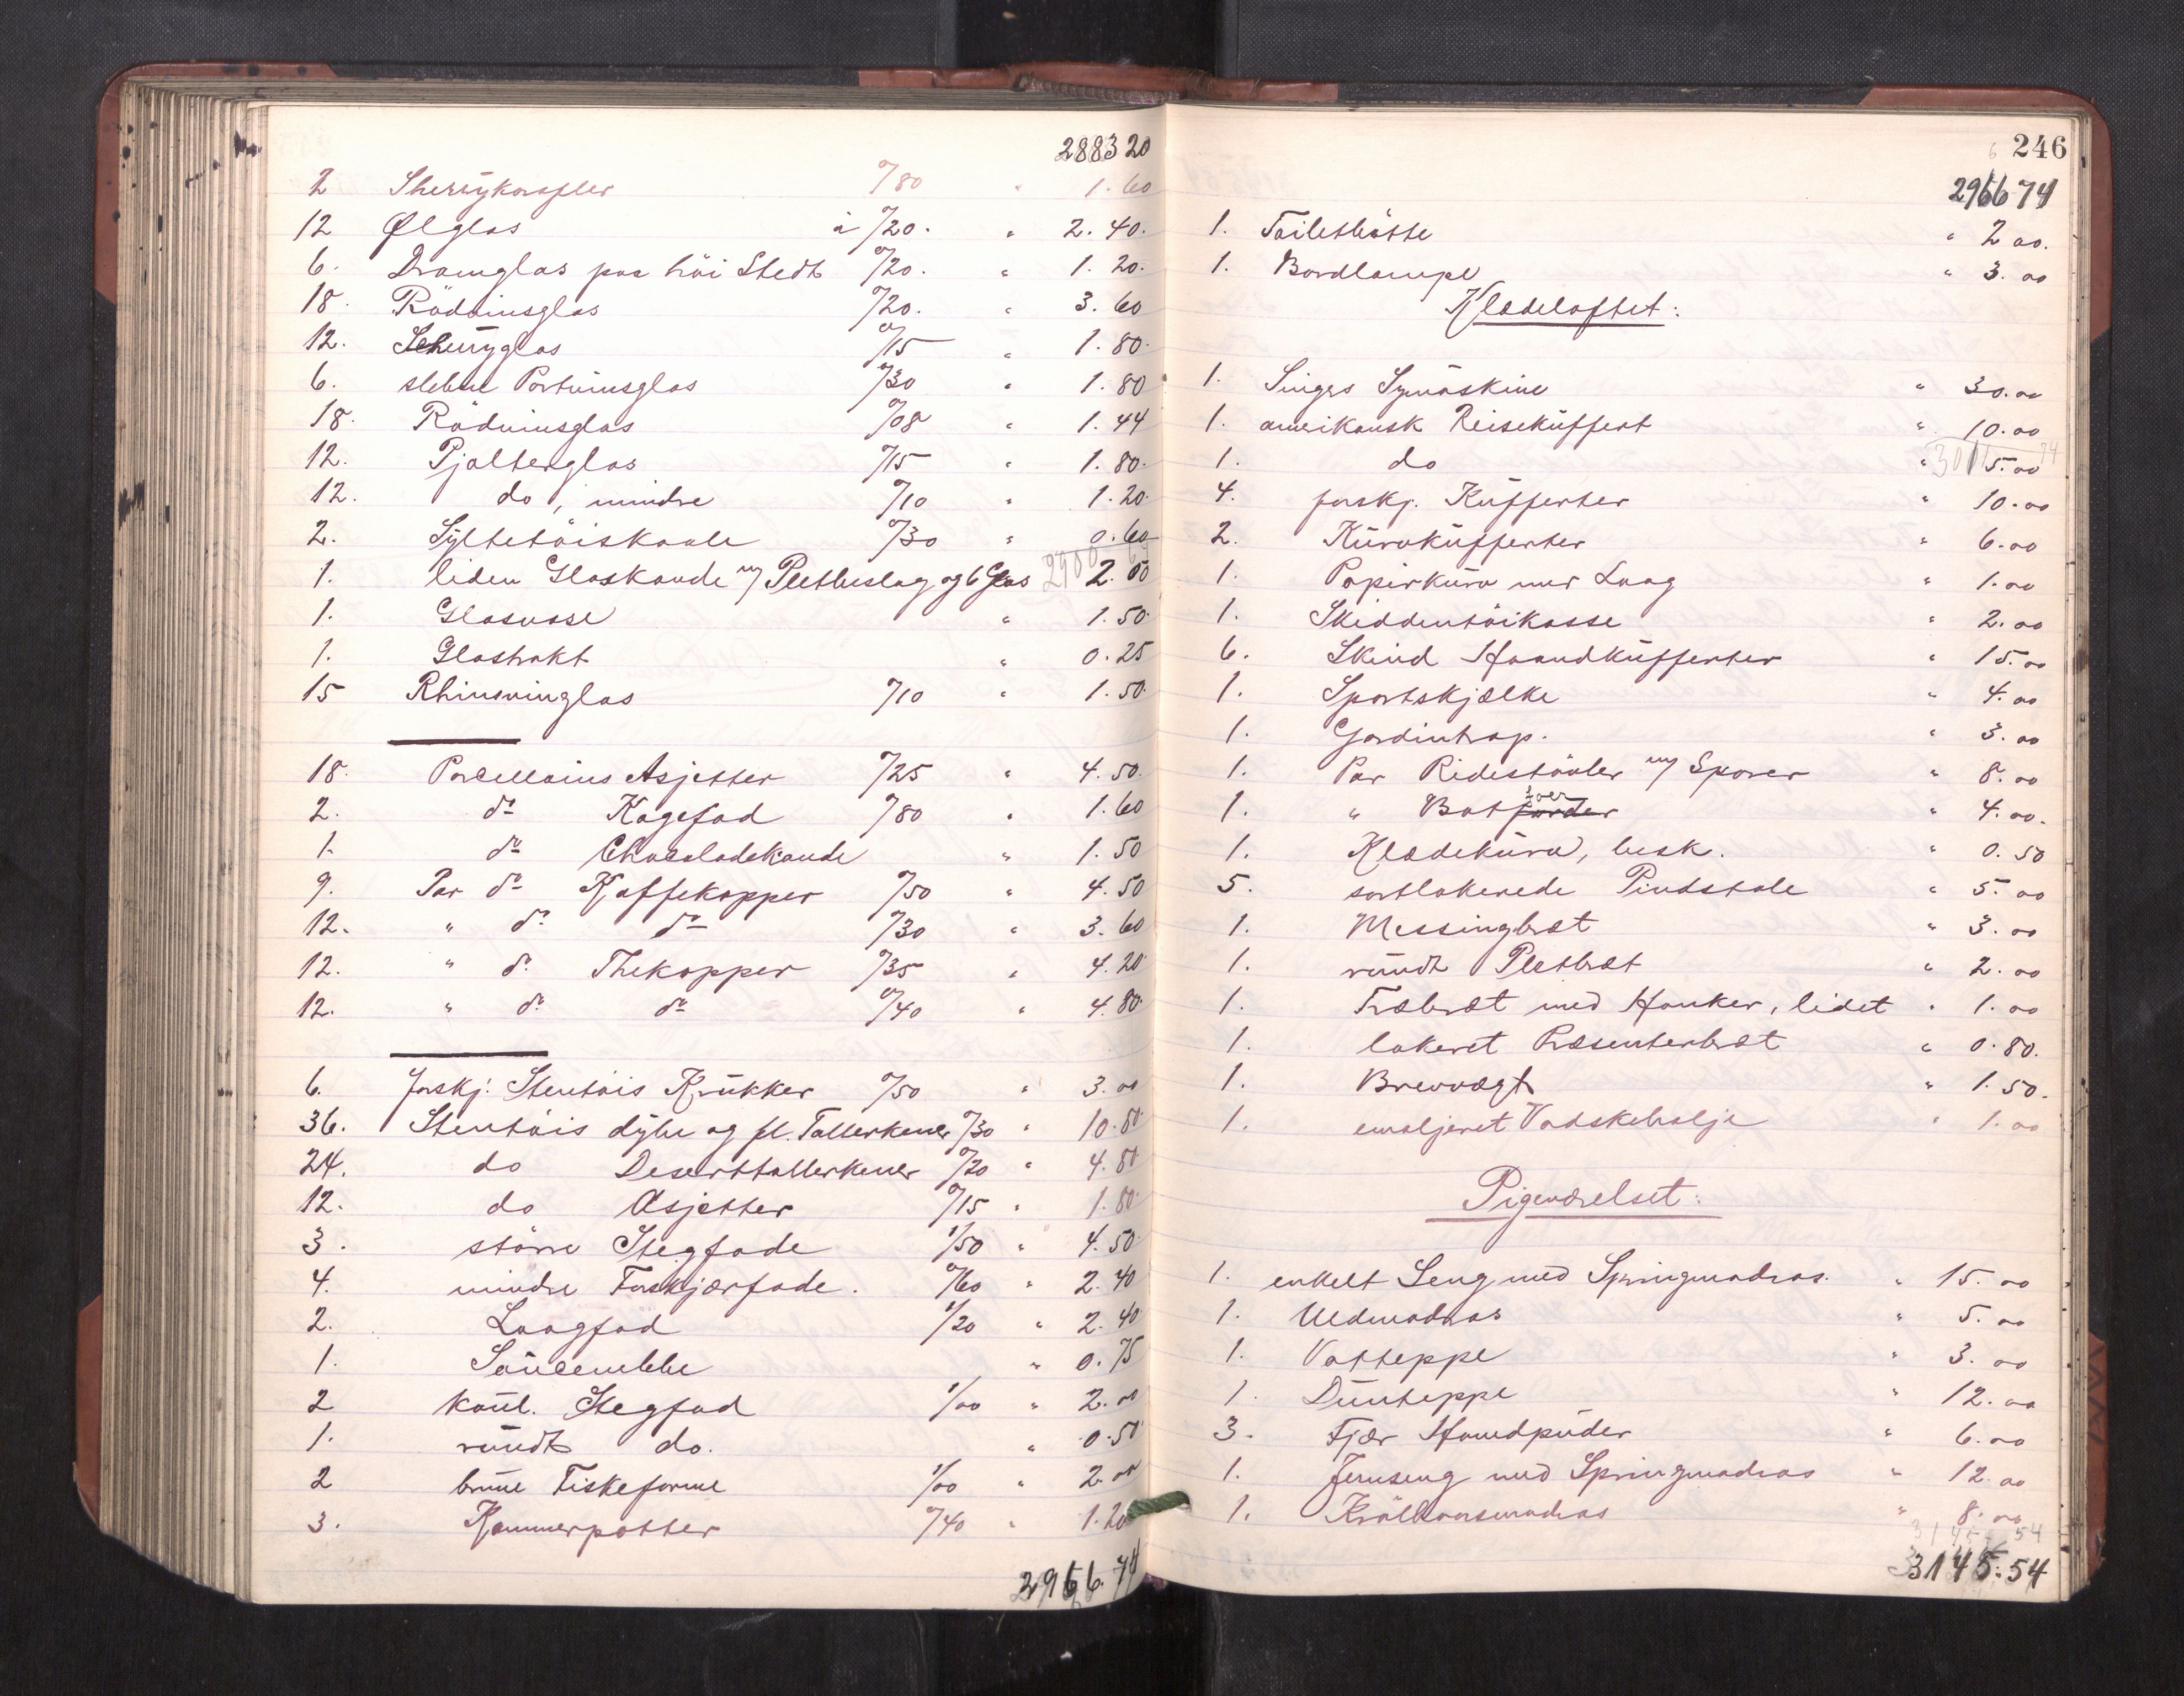 2883 20
2 Sherrykarafler 0/80 " 1.60
12 Ølglas à 0/20. " 2.40.
6. Dramglas paa höi Stedt 0/20. " 1.20.
18. Rödvinsglas 0/20. " 3.60
12. Scherryglas 0/15 " 1.80.
6. slebne Portvinsglas 0/30 " 1.80
18. Rödvinsglas 0/08 " 1.44
12. Pjolterglas 0/15 " 1.80.
12. do, mindre 0/10 " 1.20.
2. Syltetöiskaale 0/30 " 0.60
1. liden Glaskande m/ Pletbeslag og 6 Glas 2.00
1. Glasvase " 1.50.
1. Glastrakt " 0.25
15 Rhinsvinglas 0/10 " 1.50.
18. Porcellains Asjetter 0/25 " 4.50.
2. do Kagefad 0/80 " 1.60
1. do Chocoladekande " 1.50
9. Par do Kaffekopper 0/50 " 4.50
12. " do do 0/30 " 3.60
12. " do Thekopper 0/35 " 4.20
12. " do do 0/40 " 4.80
6. forskj. Stentöis Krukker 0/50 " 3.00
36. Stentöis dybe og fl. Tallerkener 0/30 " 10.80
24. do Deserttallerkener 0/20 " 4.80
12. do Asjetter 0/15 " 1.80
3. större Stegfade 1/50 " 4.50
4. mindre Forskjærfade. 0/60 " 2.40
2. Laagfad 1/20 " 2.40
1. Saucenebbe " 0.75
2 Kaal. Stegfad 1/00 " 2.00
1. rundt do. " 0.50
2 brune Fiskeforme 1/00 " 2.00
3. Kammerpotter 0/40 " 1.20
2966.74
246
2966 74
1. Toiletbötte " 2 00.
1. Bordlampe " 3.00
Klædeloftet:
1. Singers Symaskine " 30.00
1. amerikansk Reisekuffert " 10.00
1. do " 5.00
4. forskj. Kufferter " 10.00
2. Kurvkufferter " 6.00
1. Papirkurv med Laag " 1.00
1. Skiddentöikasse " 2.00
6. Skind Haandkufferter " 15.00
1. Sportskjælke " 4.00
1. Gardintrap. " 3.00
1. Par Ridestövler m/ Sporer " 8.00
1. " Botforer " 4.00.
1. Klædekurv, besk. " 0.50
5. sortlakerede Pindstole " 5.00
1. Messingbræt " 3.00
1. rundt Pletbræt " 2.00
1. Træbræt med Hanker, lidet " 1.00
1. lakeret Præsenterbræt " 0.80.
1. Brevvægt " 1.50.
1. emaljeret Vadskebalje " 1.00
Pigeværelset:
1. enkelt Seng med Springmadras. " 15.00
1. Uldmadras " 5.00
1. Vatteppe " 3.00
1. Dunteppe " 12.00
3. Fjær Hovedpuder " 6.00
1. Jernseng med Springmadras " 12.00
1. Krölhaarsmadras " 8.00
3145:54